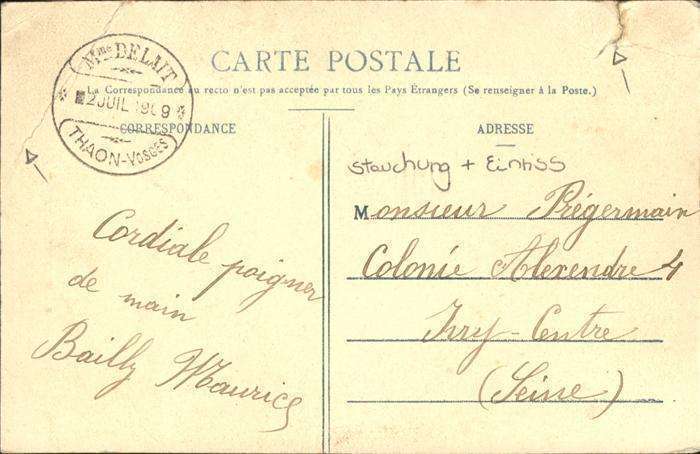 CARTE POSTALE
La Correspondance au recto n'est pas acceptée par tous les Pays Étrangers (Se renseigner à la Poste.)
Mme DELAIT
2 JUIL 1909
THAON-VOSGES
CORRESPONDANCE
Cordiale poigner
de main
Bailly Maurice
ADRESSE
Stauchung + Einriss
Monsieur Prégermain
Colonie Alexendre 4
Ivry-Centre
(Seine)